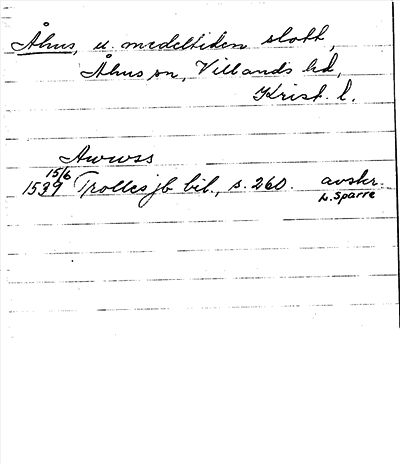 Åhus, u. medeltiden slott,
Åhus sn, Villands hd,
Krist. l.
Awwss
15/6
1539 Trolles jb bil., s. 260. avskr.
L. Sparre